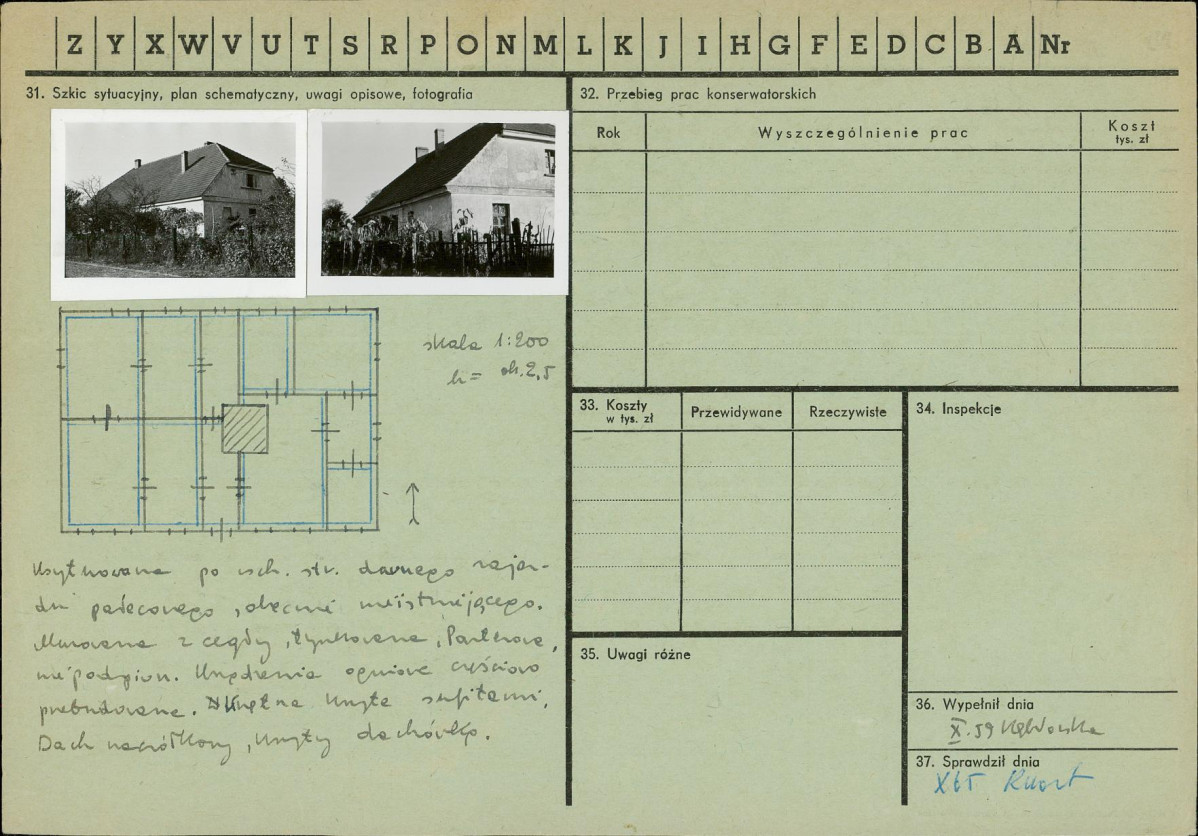 Z Y X W V U T S R P O N M L K J I H G F E D C B A Nr
31. Szkic sytuacyjny, plan schematyczny, uwagi opisowe, fotografia
skala 1:200
h = ok. 2,5
Usytuowana po wsch. str. dawnego zajaz-
du pałacowego, obecnie nieistniejącego.
Murowana z cegły, tynkowana, Parterowa,
niepodpiwn. Urządzenia ogniowe częściowo
przebudowane. Wnętrza kryte sufitami,
Dach naczółkowy, kryty dachówką.
32. Przebieg prac konserwatorskich
Rok
Wyszczególnienie prac
Koszt
tys. zł
33. Koszty
w tys. zł
Przewidywane
Rzeczywiste
34. Inspekcje
35. Uwagi różne
36. Wypełnił dnia
X.59
37. Sprawdził dnia
X 65